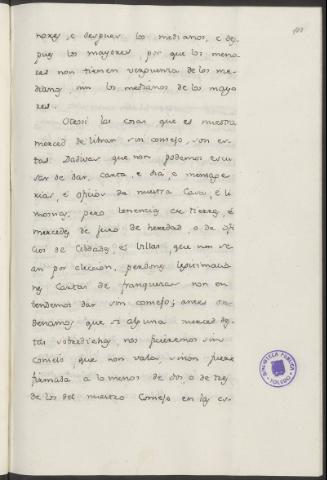 nores, e despues los medianos, e des
pues los mayores, por que los meno
res non tienen verguenza de los me-
dianos, nin los medianos de los mayo
res.
Otrosi las cosas que es nuestra
merced de librar sin consejo, son es-
tas Dadivas que non podemos escu
sar de dar, cada dia, e mensage
rias, e oficios de nuestra Casa, e li
mosnas; pero tenencia de tierras, e
mercedes de juro de heredad, o de ofi
cios de Cibdades, e Villas, que non se
an por eleccion, perdones, legitimacio
nes, Cartas de franquezas non en
tendemos dar sin consejo; antes or
denamos que si alguna merced de
las sobredichas nos ficieremos sin
consejo, que non vala, si non fuere
firmada a lo menos de dos, o de tres
de los del nuestro Consejo en las es-
BIBLIOTECA PUBLICA
TOLEDO